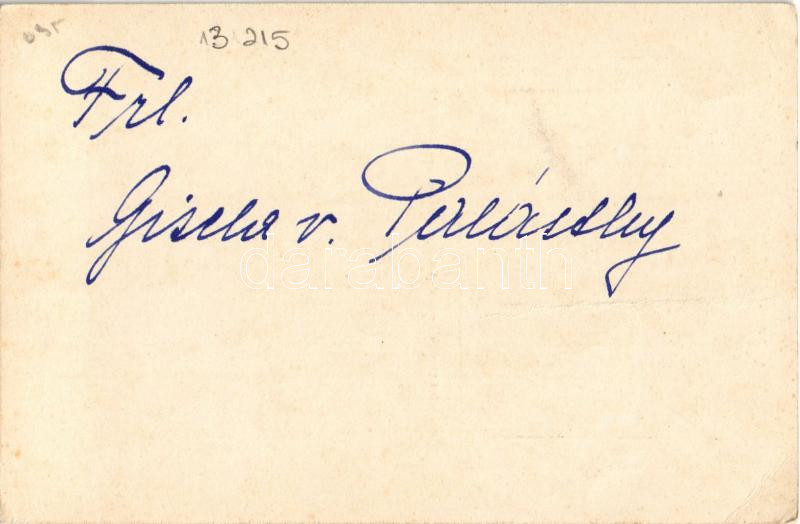 13 215
Frl.
Gisela v. Palásthy
darabanth